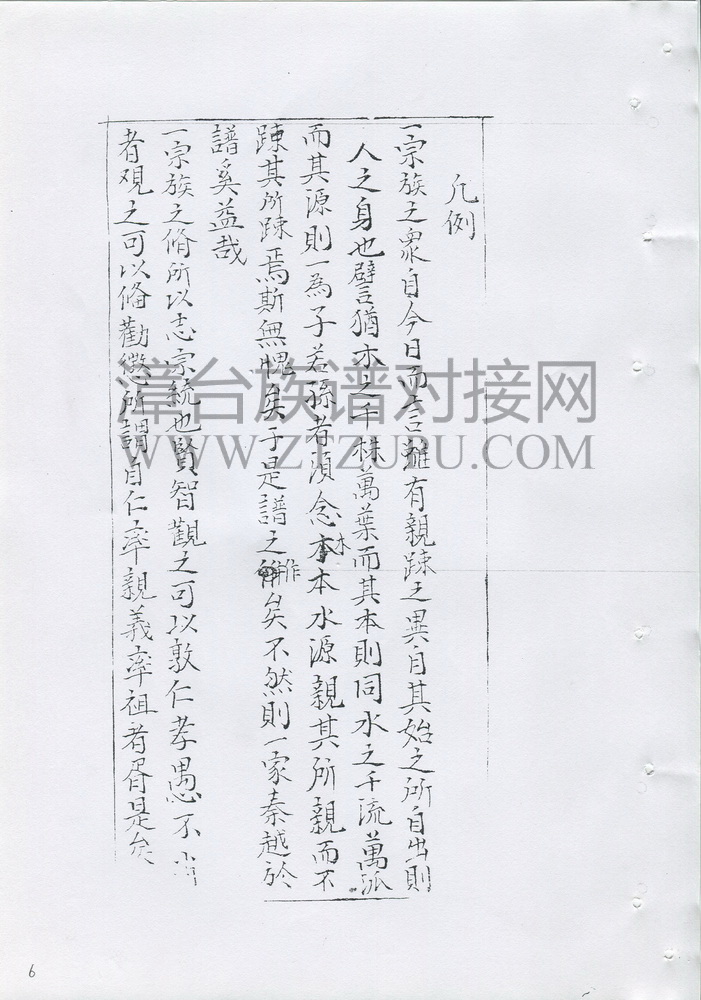 凡例
一宗族之衆自今日而言雖有親踈之異自其始之所自出則
人之身也譬猶木之千株萬葉而其本則同水之千流萬派
而其源則一為子若孫者須念木本水源親其所親而不
踈其所踈焉斯無愧矣于是譜之作矣不然則一家秦越於
譜奚益哉
一宗族之脩所以志宗統也賢智觀之可以敦仁孝愚不肖
者观之可以俻勸懲所謂自仁率親義率祖者胥是矣
漳台族谱对接网
WWW.ZTZUPU.COM
6